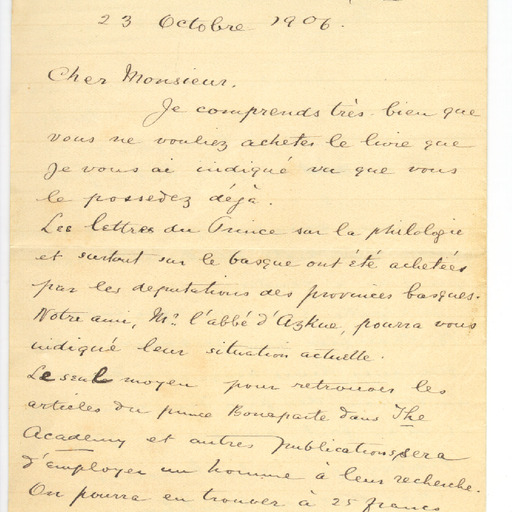 23 Octobre 1906.
Cher Monsieur.
Je comprends très bien que
vous ne vouliez acheter le livre que
Je vous ai indiqué vu que vous
le possedez déjà.
Les lettres du Prince sur la philologie
et surtout sur le basque ont été achetées
par les deputations des provinces basques.
Notre ami, Mr. l'abbé d'Azkue, pourra vous
indiqué leur situation actuelle.
Le seul moyen pour retrouver les
articles du prince Bonaparte dans The
Academy et autres publications sera
d'employer un homme à leur recherche.
On pourra en trouver à 25 francs